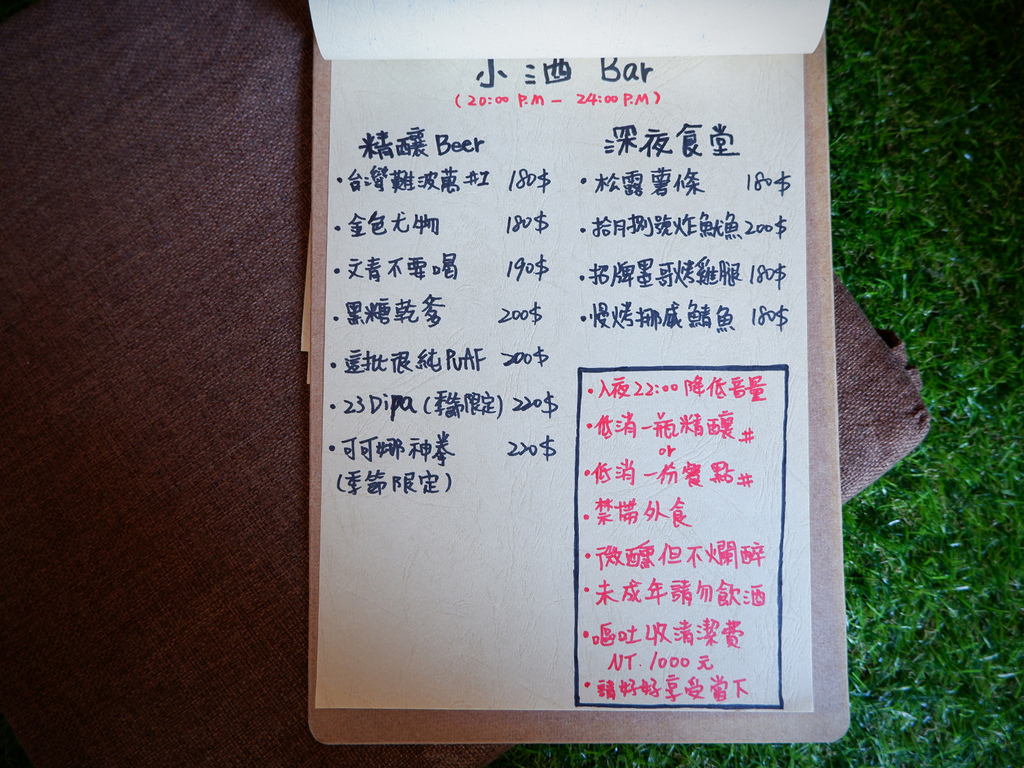 小酒 Bar
(20:00 P.M - 24:00 P.M)
精釀 Beer
・台灣難波萬 #1 180$
・金色尤物 180$
・文青不要喝 190$
・黑糖乾爹 200$
・這批很純 PUAF 200$
・23 Dipa (季節限定) 220$
・可可娜神拳 220$
(季節限定)
深夜食堂
・松露薯條 180$
・拾月捌號炸魷魚 200$
・招牌墨哥烤雞腿 180$
・慢烤挪威鯖魚 180$
・入夜22:00降低音量
・低消一瓶精釀#
or
・低消一份餐點#
・禁帶外食
・微醺但不爛醉
・未成年請勿飲酒
・嘔吐收清潔費
NT. 1000元
・請好好享受當下